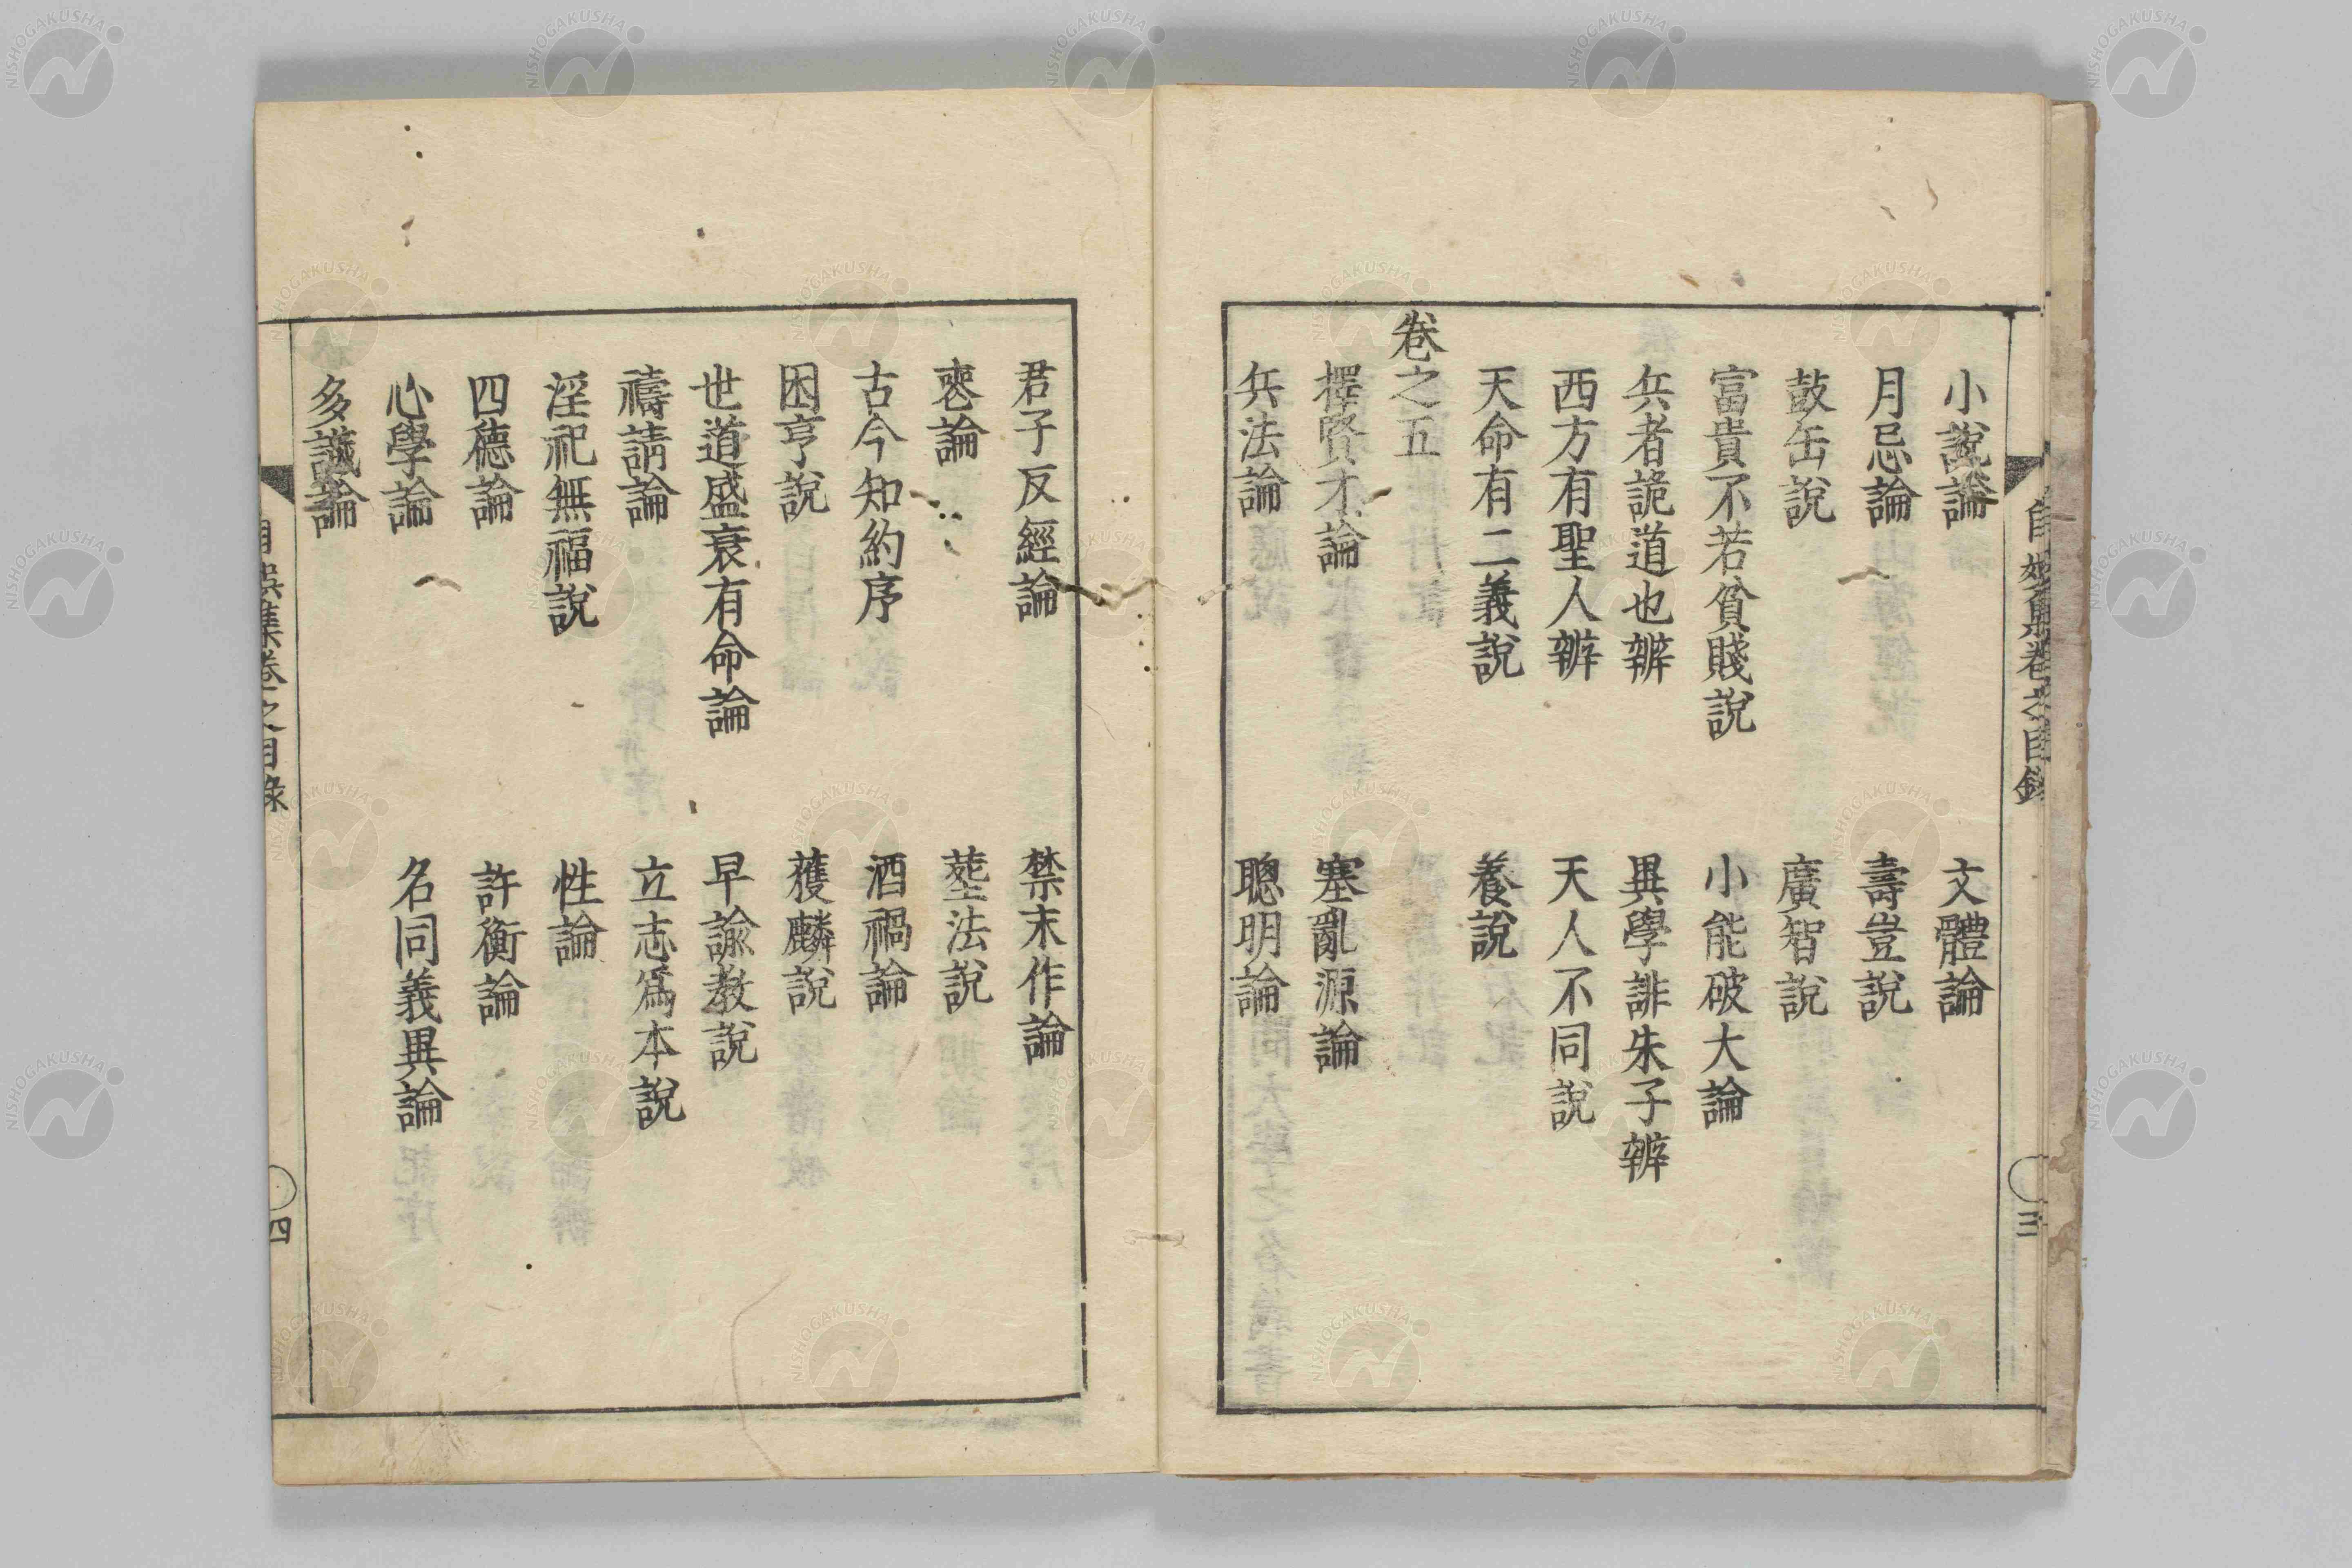 小說論　文體論
月忌論　壽豈說
鼓缶說　廣智說
富貴不若貧賤說　小能破大論
兵者詭道也辨　異學誹朱子辨
西方有聖人辨　天人不同說
天命有二義說　養說
卷之五
擇賢才論　塞亂源論
兵法論　聰明論
三
君子反經論　禁末作論
喪論　葬法說
古今知約序　酒禍論
困亨說　獲麟說
世道盛衰有命論　早諭教說
禱請論　立志爲本說
淫祀無福說　性論
四德論　許衡論
心學論　名同義異論
多識論
集卷之目錄
四
NISHOGAKUSHA